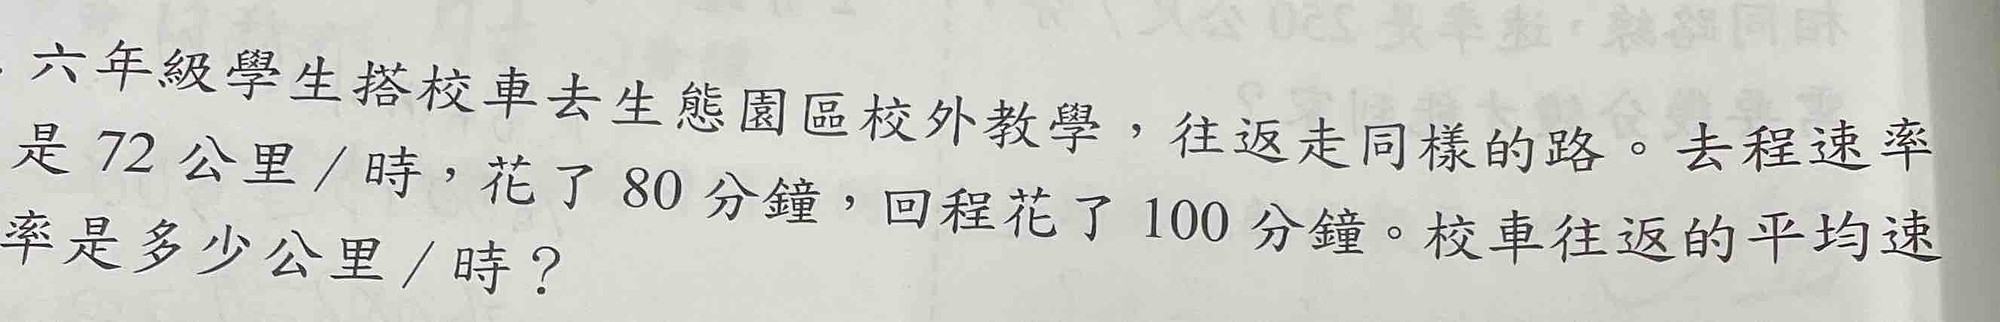 六年級學生搭校車去生態園區校外教學，往返走同樣的路。去程速率
是 72 公里/時，花了 80 分鐘，回程花了 100 分鐘。校車往返的平均速
率是多少公里/時？